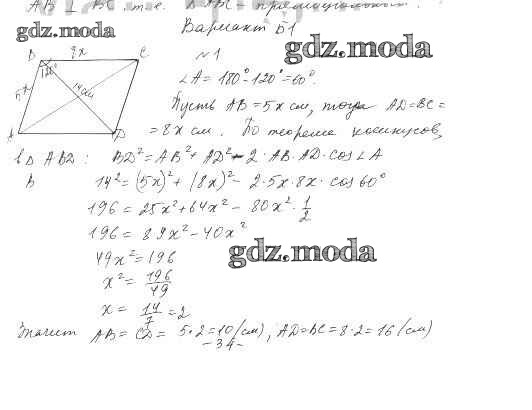 AB ⊥ BC, т.е. Δ ABC - прямоугольный.
gdz.moda
Вариант Б1
gdz.moda
B 8x C
120°
14 см
5x
A D
№1
∠A = 180° - 120° = 60°.
Пусть AB = 5x см, тогда AD = BC =
= 8x см. По теореме косинусов,
в Δ ABD: BD² = AB² + AD² - 2 · AB · AD · cos∠A
В 14² = (5x)² + (8x)² - 2·5x·8x· cos 60°
196 = 25x² + 64x² - 80x² · 1/2
196 = 89x² - 40x²
gdz.moda
49x² = 196
x² = 196/49
x = 14/7 = 2
Значит AB = CD = 5·2 = 10 (см), AD = BC = 8·2 = 16 (см)
- 34 -